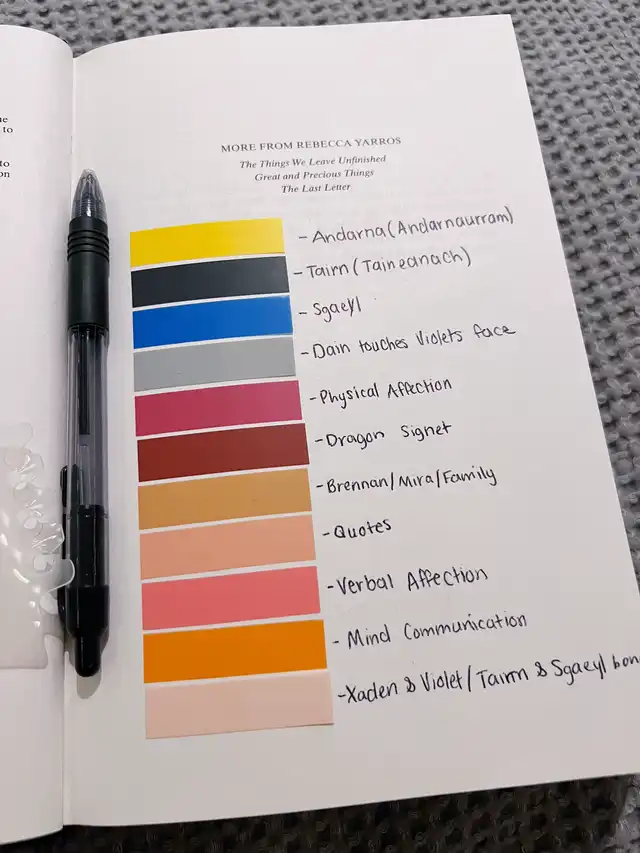 ue
to
to
on
MORE FROM REBECCA YARROS
The Things We Leave Unfinished
Great and Precious Things
The Last Letter
- Andarna (Andarnaurram)
- Tairn (Taineanach)
- Sgaeyl
- Dain touches Violets face
- Physical Affection
- Dragon Signet
- Brennan/Mira/Family
- Quotes
- Verbal Affection
- Mind Communication
- Xaden & Violet/Tairn & Sgaeyl bon